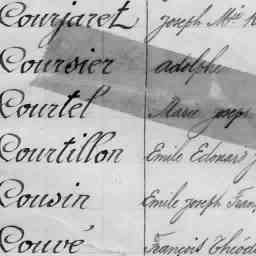 Courjaret Joseph Mie
Coursier adolphe
Courtel Marie Joseph
Courtillon Emile Edouard
Cousin Emile Joseph Fran
Couvé François Théod